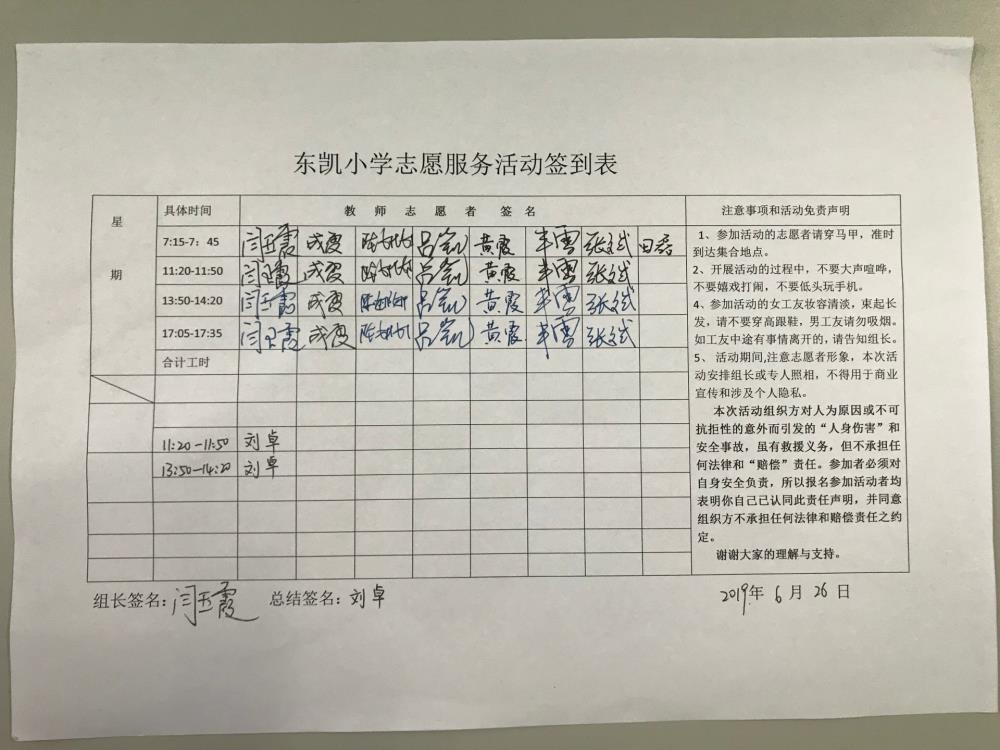 东凯小学志愿服务活动签到表
星期
具体时间
教 师 志 愿 者 签 名
注意事项和活动免责声明
7:15-7：45 闫玉霞 成霞 吕凯 黄霞 张斌
11:20-11:50 闫玉霞 成霞 吕凯 黄霞 张斌
13:50-14:20 闫玉霞 成霞 吕凯 黄霞 张斌
17:05-17:35 闫玉霞 成霞 吕凯 黄霞 张斌
合计工时
11:20-11:50 刘卓
13:50-14:20 刘卓
1、参加活动的志愿者请穿马甲，准时
到达集合地点。
2、开展活动的过程中，不要大声喧哗，
不要嬉戏打闹，不要低头玩手机。
4、参加活动的女工友妆容清淡，束起长
发，请不要穿高跟鞋，男工友请勿吸烟。
如工友中途有事情离开的，请告知组长。
5、 活动期间,注意志愿者形象，本次活
动安排组长或专人照相，不得用于商业
宣传和涉及个人隐私。
本次活动组织方对人为原因或不可
抗拒性的意外而引发的“人身伤害”和
安全事故，虽有救援义务，但不承担任
何法律和“赔偿”责任。参加者必须对
自身安全负责，所以报名参加活动者均
表明你自己已认同此责任声明，并同意
组织方不承担任何法律和赔偿责任之约
定。
谢谢大家的理解与支持。
组长签名：闫玉霞 总结签名：刘卓
2019年 6 月 26 日